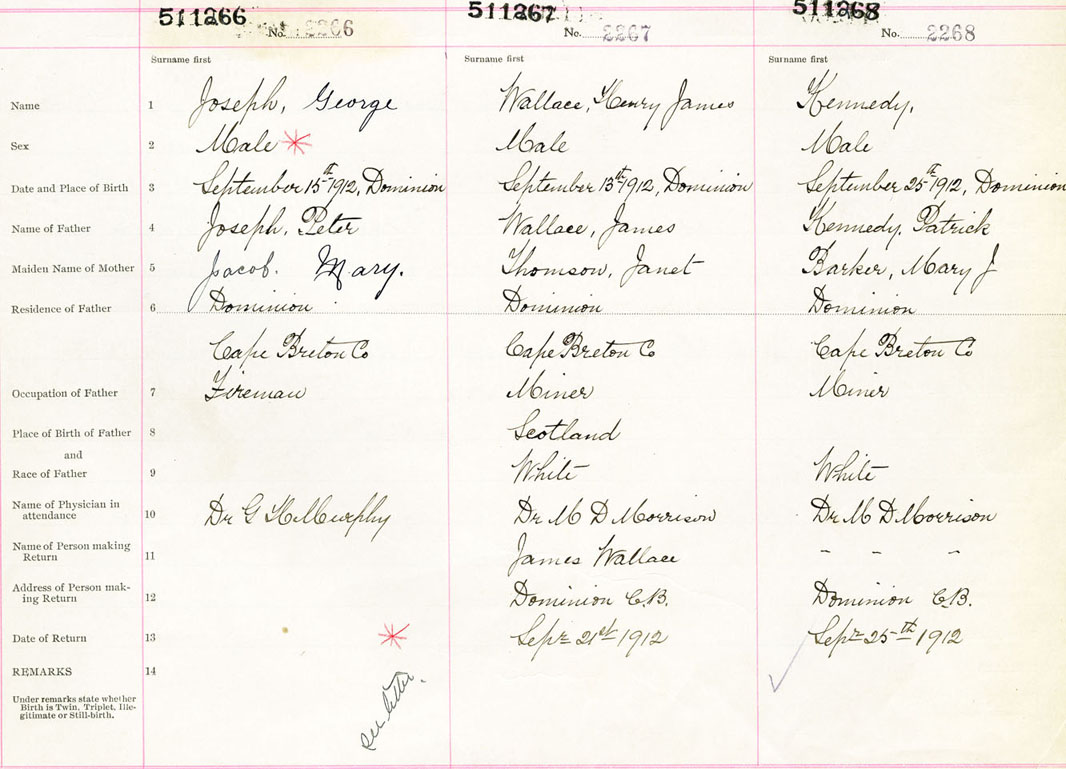 511266 511267 511268
No. 2266 No. 2267 No. 2268
Surname first Surname first Surname first
Name 1 Joseph, George Wallace, Henry James Kennedy,
Sex 2 Male * Male Male
Date and Place of Birth 3 September 15th 1912, Dominion September 13th 1912, Dominion September 25th 1912, Dominion
Name of Father 4 Joseph, Peter Wallace, James Kennedy, Patrick
Maiden Name of Mother 5 Jacob. Mary. Thomson, Janet Barker, Mary J
Residence of Father 6 Dominion Dominion Dominion
Cape Breton Co Cape Breton Co Cape Breton Co
Occupation of Father 7 Fireman Miner Miner
Place of Birth of Father 8 Scotland
and
Race of Father 9 White White
Name of Physician in
attendance 10 Dr G H Murphy Dr M D Morrison Dr M D Morrison
Name of Person making
Return 11 James Wallace - - -
Address of Person mak-
ing Return 12 Dominion C.B. Dominion C.B.
Date of Return 13 * Sept 21st 1912 Sept 25th 1912
REMARKS 14
Under remarks state whether
Birth is Twin, Triplet, Ille-
gitimate or Still-birth.
see letter.